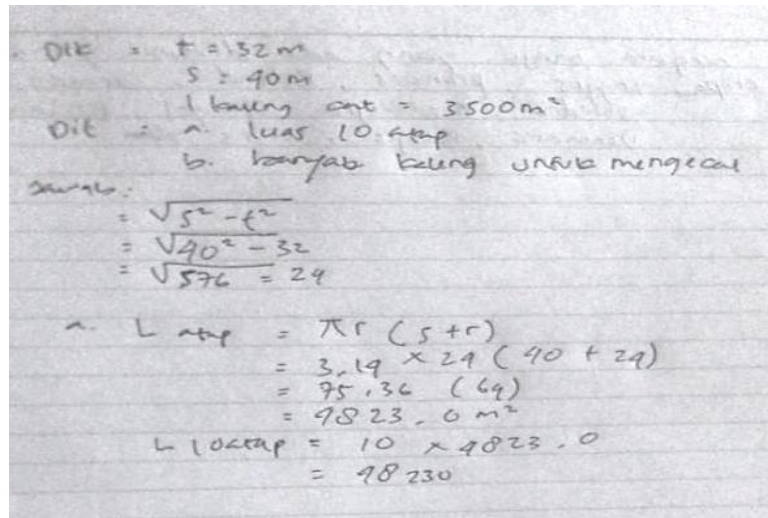 Dik : t = 32 m
s = 40 m
1 kaleng cat = 3500 m²
Dit : a. luas 10 atap
b. banyak kaleng untuk mengecat
Jawab :
= √s² - t²
= √40² - 32
= √576 = 24
a. L atap = πr (s + r)
= 3,14 × 24 (40 + 24)
= 75,36 (64)
= 4823,0 m²
L 10 atap = 10 × 4823,0
= 48230